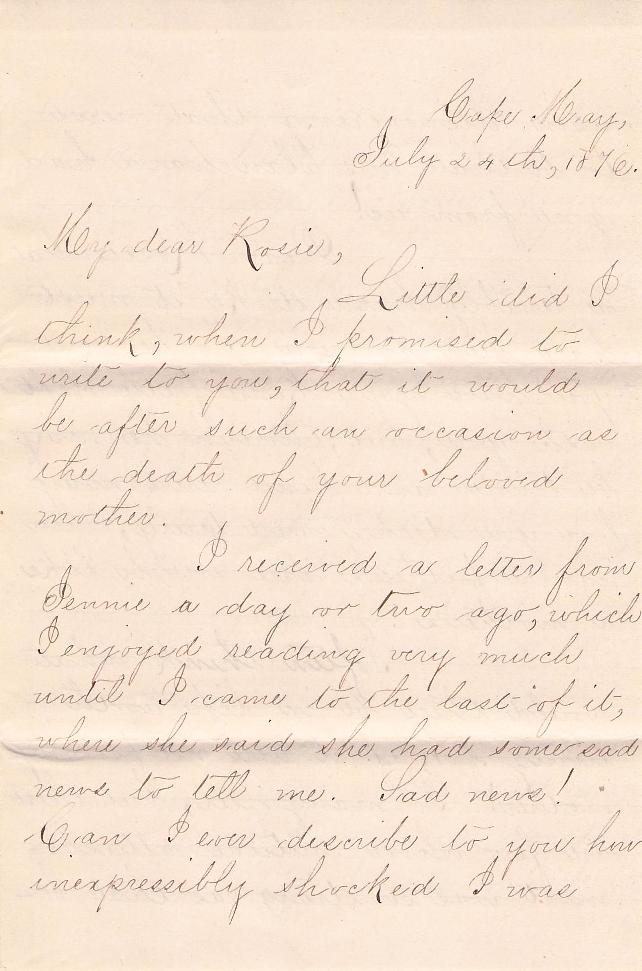 Cape May,
July 24th, 1876.
My dear Rosie,
Little did I
think, when I promised to
write to you, that it would
be after such an occasion as
the death of your beloved
mother.
I received a letter from
Jennie a day or two ago, which
I enjoyed reading very much
until I came to the last of it,
where she said she had some sad
news to tell me. Sad news!
Can I ever describe to you how
inexpressibly shocked I was